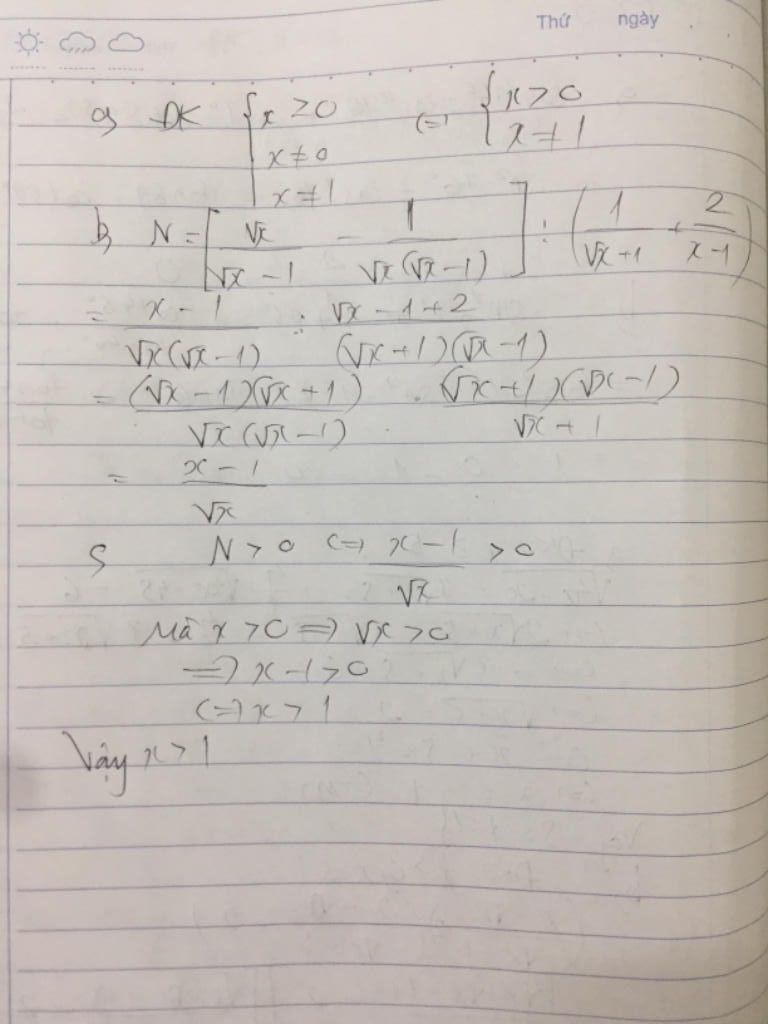 Thứ ngày
a, ĐK { x ≥ 0 (=) { x > 0
x ≠ 0 x ≠ 1
x ≠ 1
b, N = [ √x / (√x - 1) - 1 / (√x(√x - 1)) ] : ( 1 / (√x + 1) + 2 / (x - 1) )
= (x - 1) / (√x(√x - 1)) : (√x - 1 + 2) / ((√x + 1)(√x - 1))
= (√x - 1)(√x + 1) / (√x(√x - 1)) . (√x + 1)(√x - 1) / (√x + 1)
= (x - 1) / √x
c, N > 0 (=) (x - 1) / √x > 0
Mà x > 0 => √x > 0
=> x - 1 > 0
(=) x > 1
Vậy x > 1